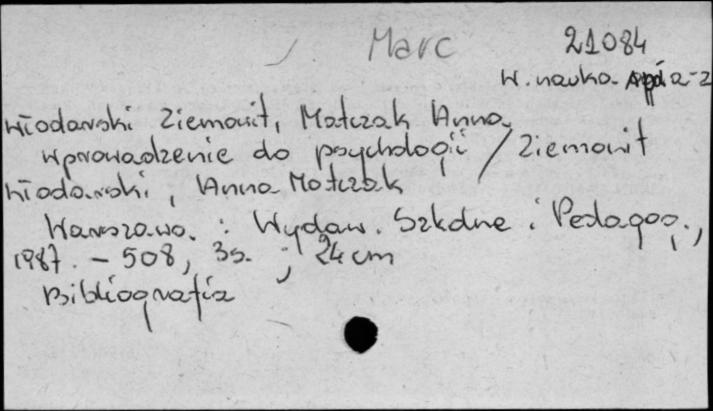 Marc 21084
W. nauka a-z
Włodarski Ziemowit, Matczak Anna
Wprowadzenie do psychologii / Ziemowit
Włodarski, Anna Matczak
Warszawa : Wydaw. Szkolne i Pedagog.,
1987. - 508, 3s. ; 24cm
Bibliografia